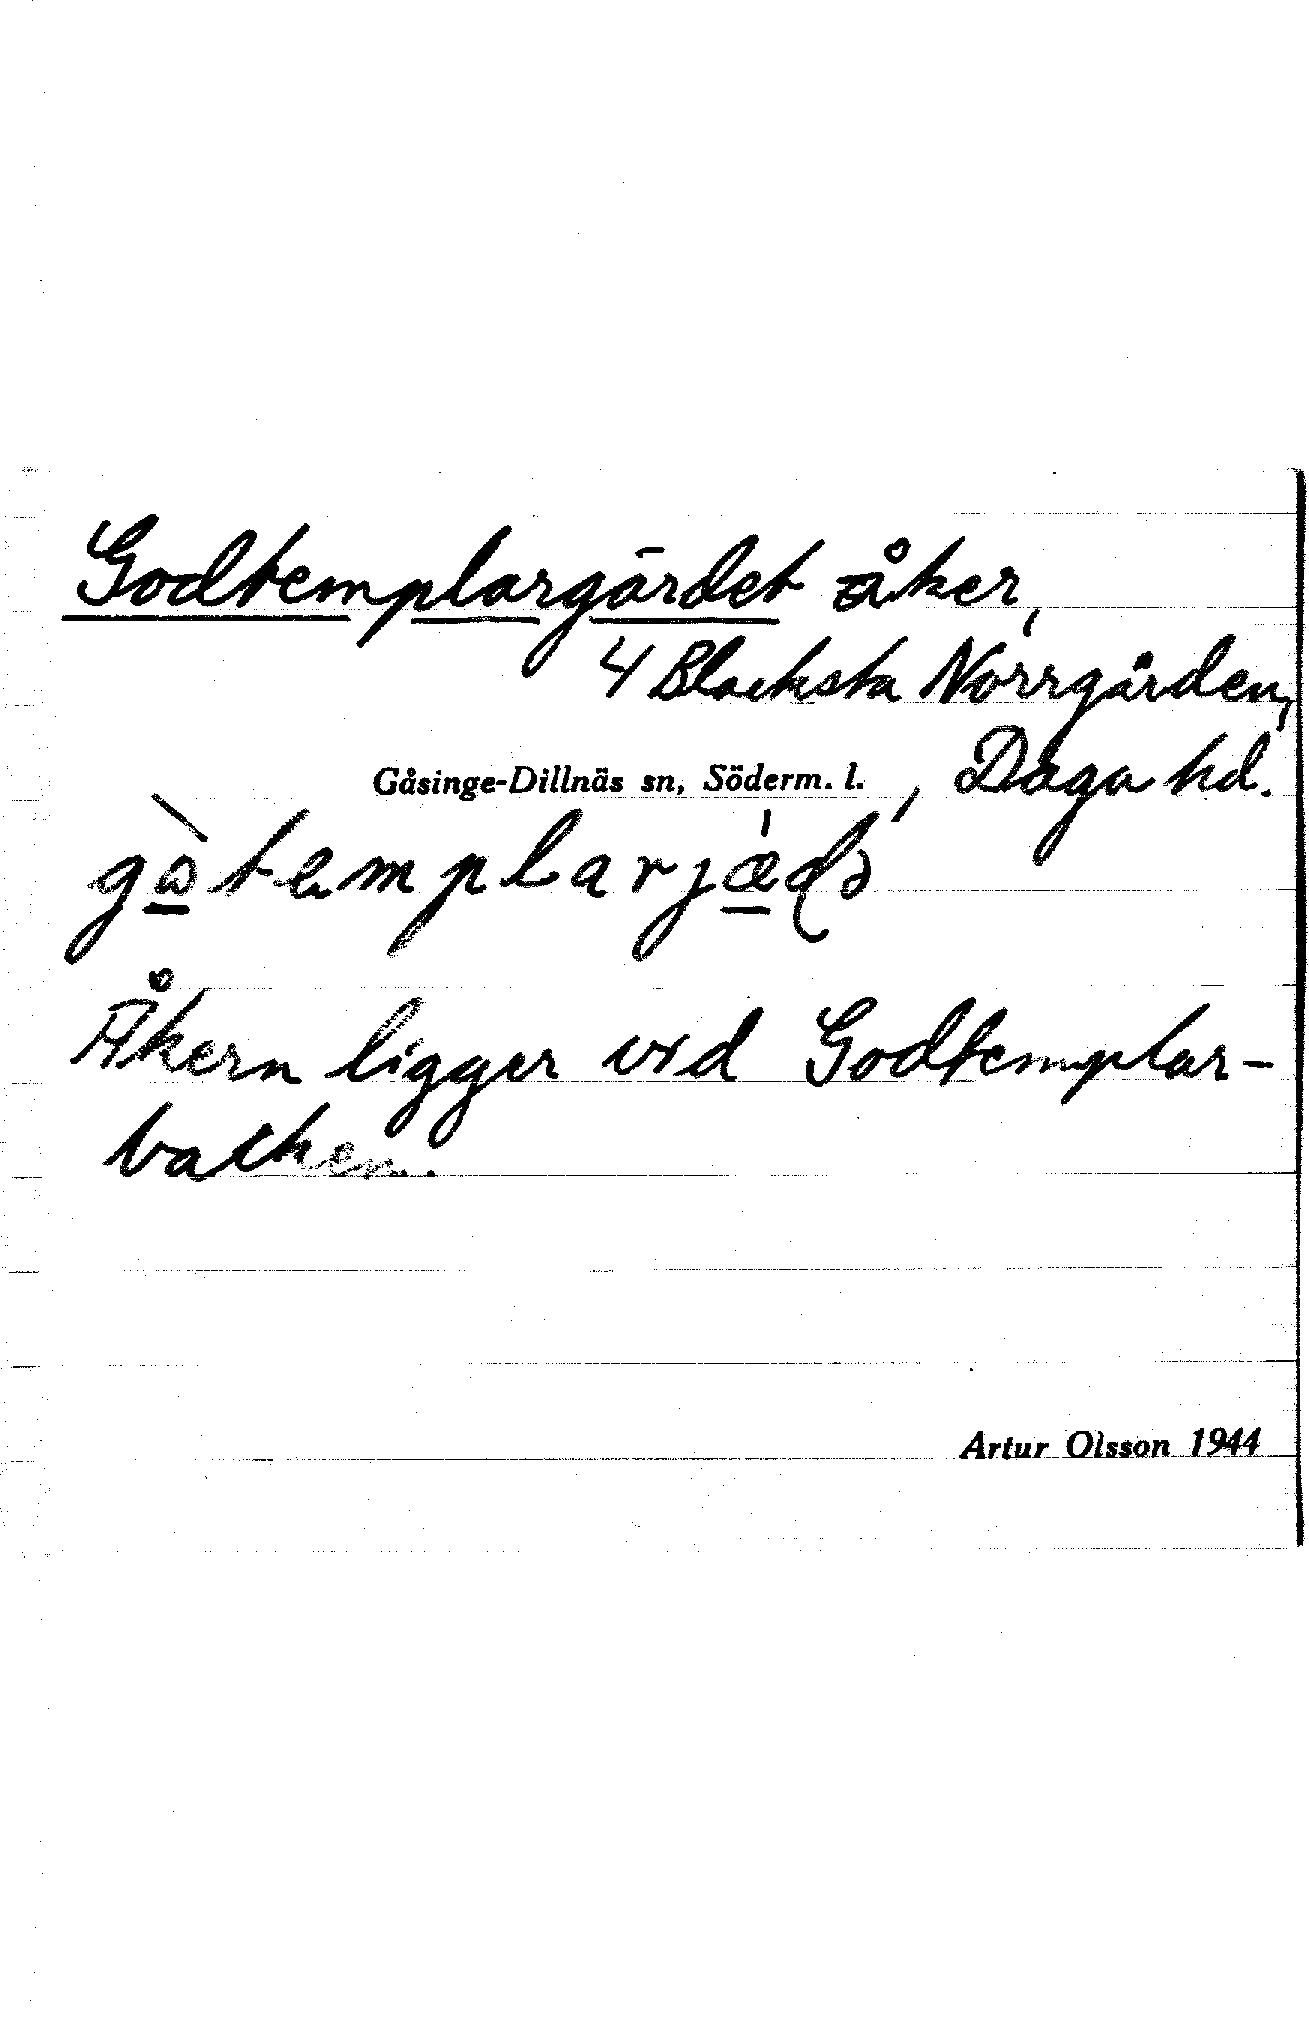 Godtemplargärdet åker,
4 Blacksta Norrgården,
Gåsinge-Dillnäs sn, Söderm. l., Daga hd.
Åkern ligger vid Godtemplar-
backen.
Artur Olsson 1944